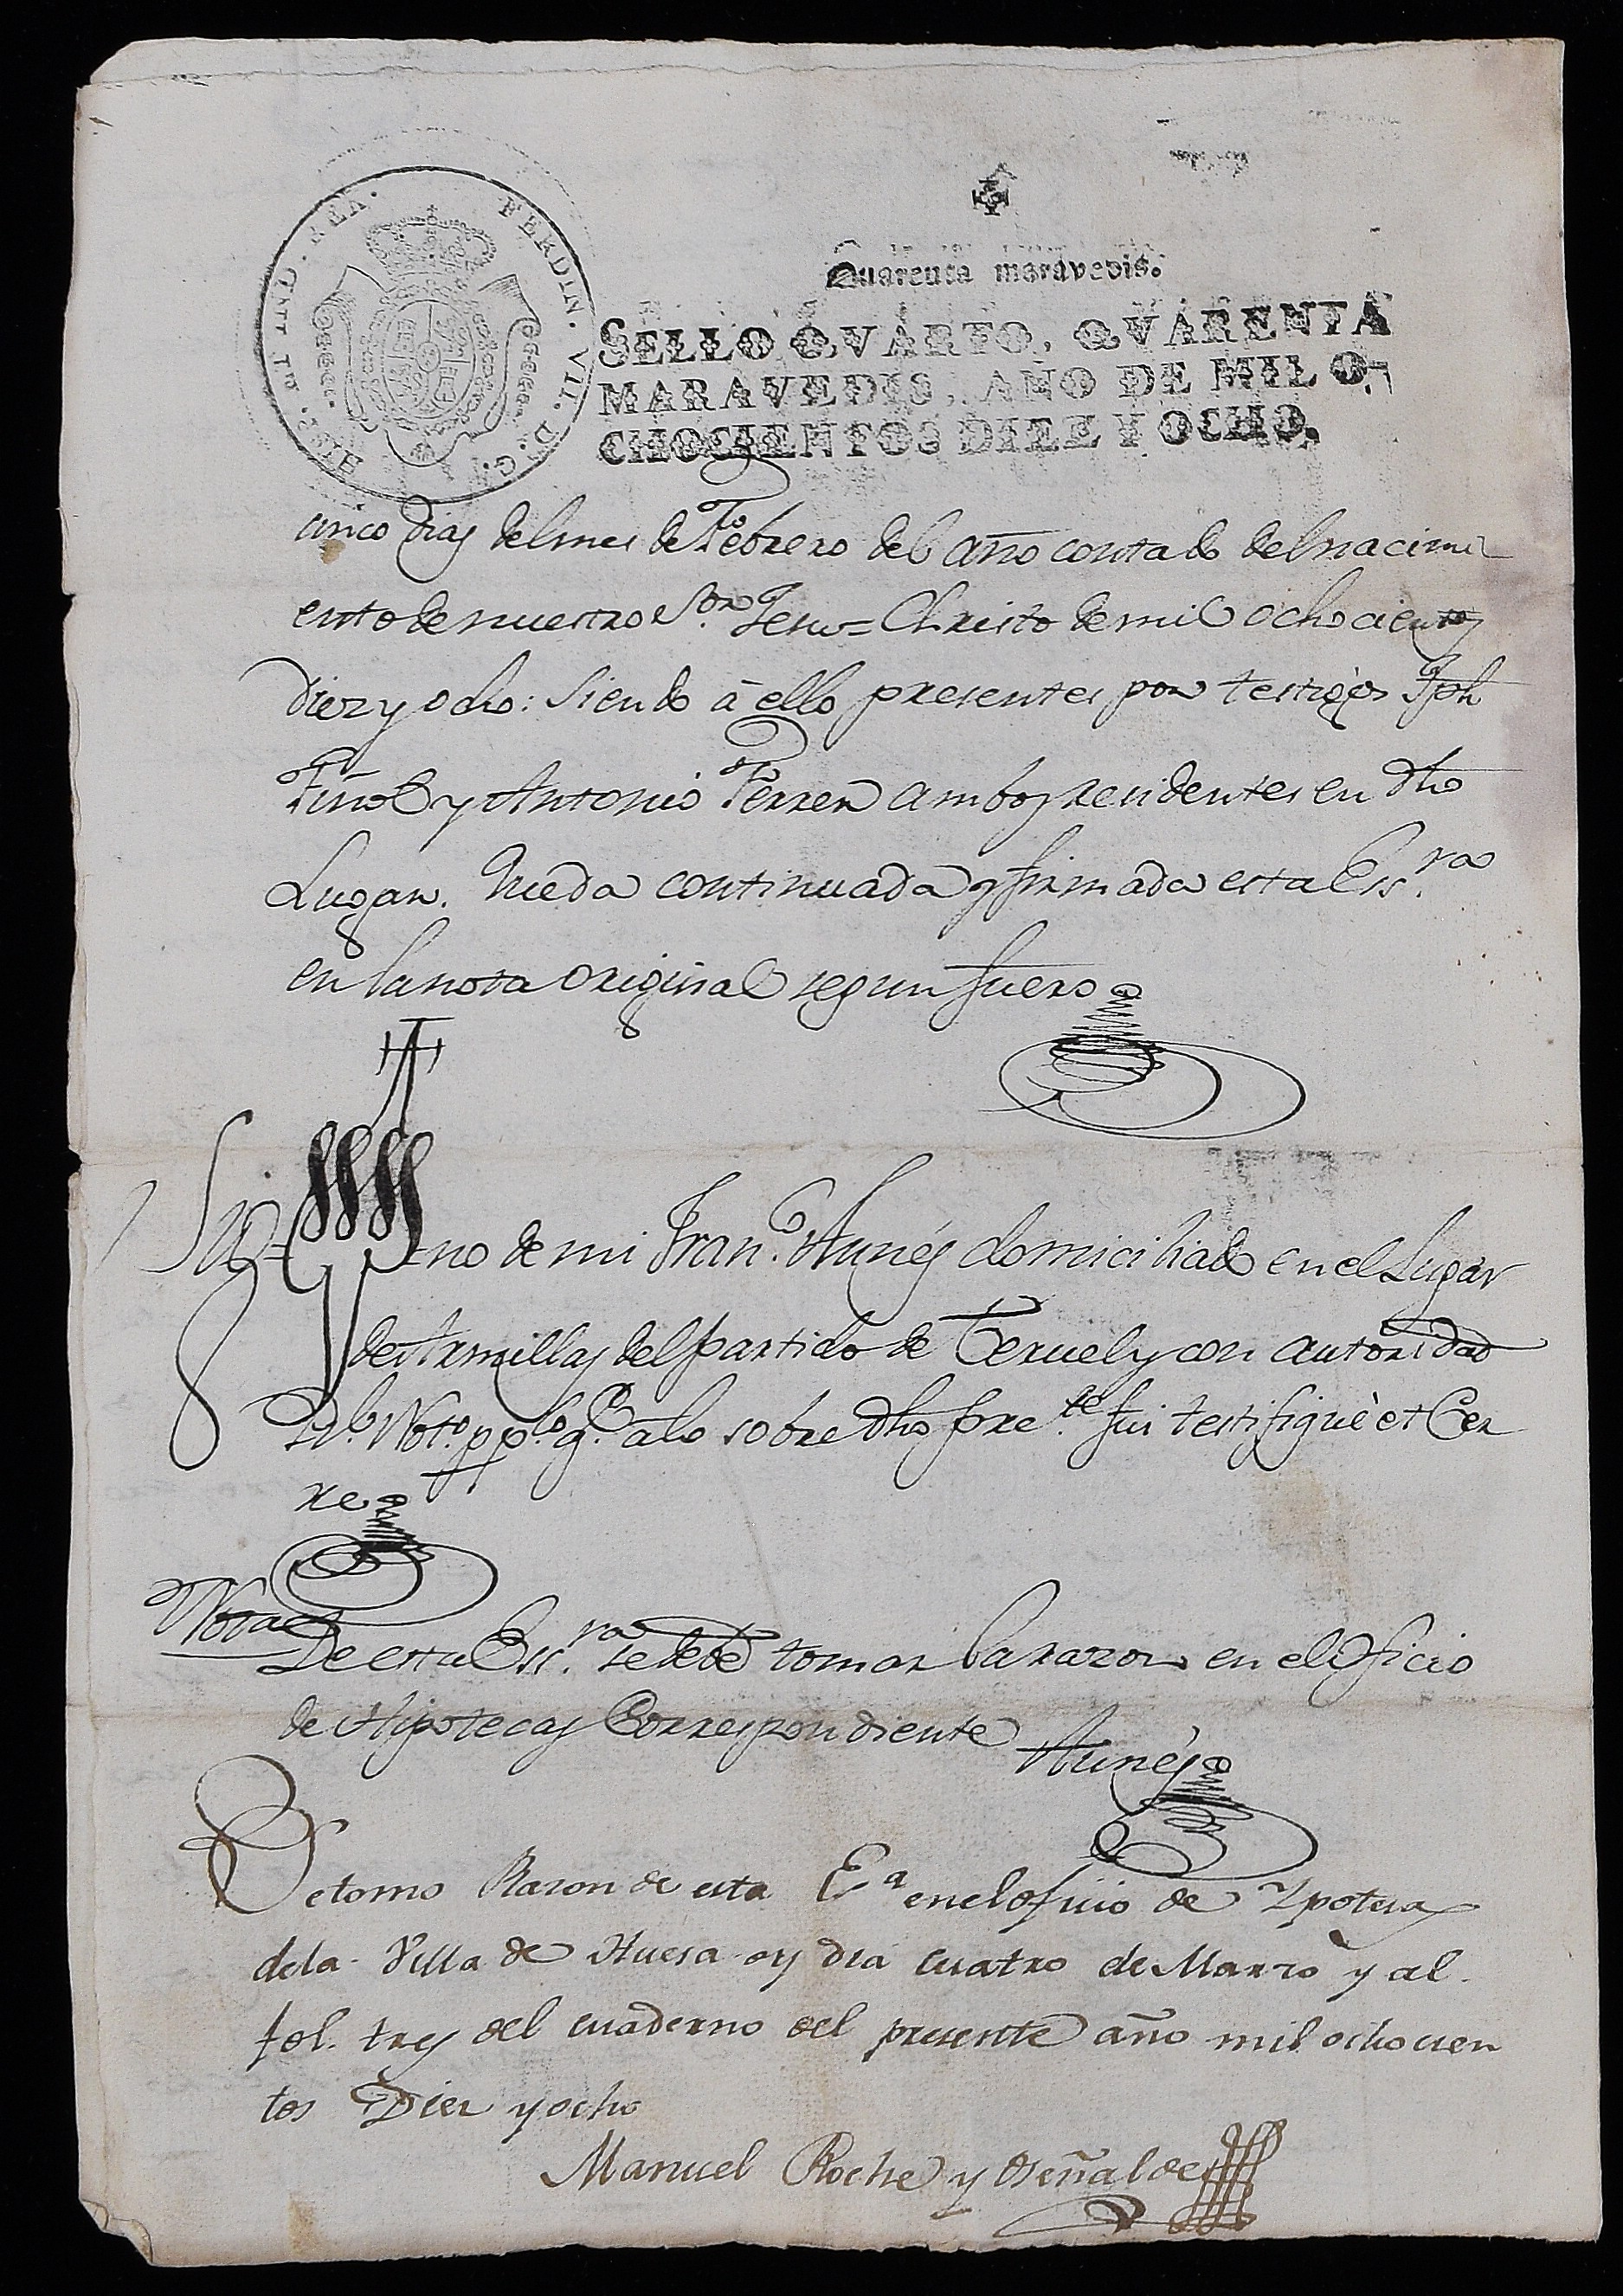 HISP. ET IND. REX. FERDIN. VII. D. G.
Quarenta maravedis.
SELLO QVARTO, QVARENTA
MARAVEDIS, AÑO DE MIL O-
CHOCIENTOS DIEZ Y OCHO.
cinco dias del mes de Febrero del año contado del nacimi
ento de nuestro S.or Jesu=Christo de mil ochocientos
diez y ocho: siendo á ello presentes por testigos Jph
Fiñol y Antonio Ferrer ambos residentes en dho
Lugar. Queda continuada y firmada esta Ess.ra
en la nota original segun fuero
Sig=no de mi Fran.co Aunés domiciliado en el Lugar
de Armillas del partido de Teruel y con autoridad
Rl. Noto. ppco. q.e á lo sobre dho pre.te fui testifiqué et Cer
re
Nota
De esta Ess.ra se debe tomar la razon en el Oficio
de Hipotecas Correspondiente Aunés
Se tomo Razon de esta E.a en el ofiiio de Ypoteca
de la Villa de Huesa oy dia cuatro de Marzo y al
fol. tres del cuaderno del presente año mil ochocien
tos Diez y ocho
Manuel Roche y Oseñalde